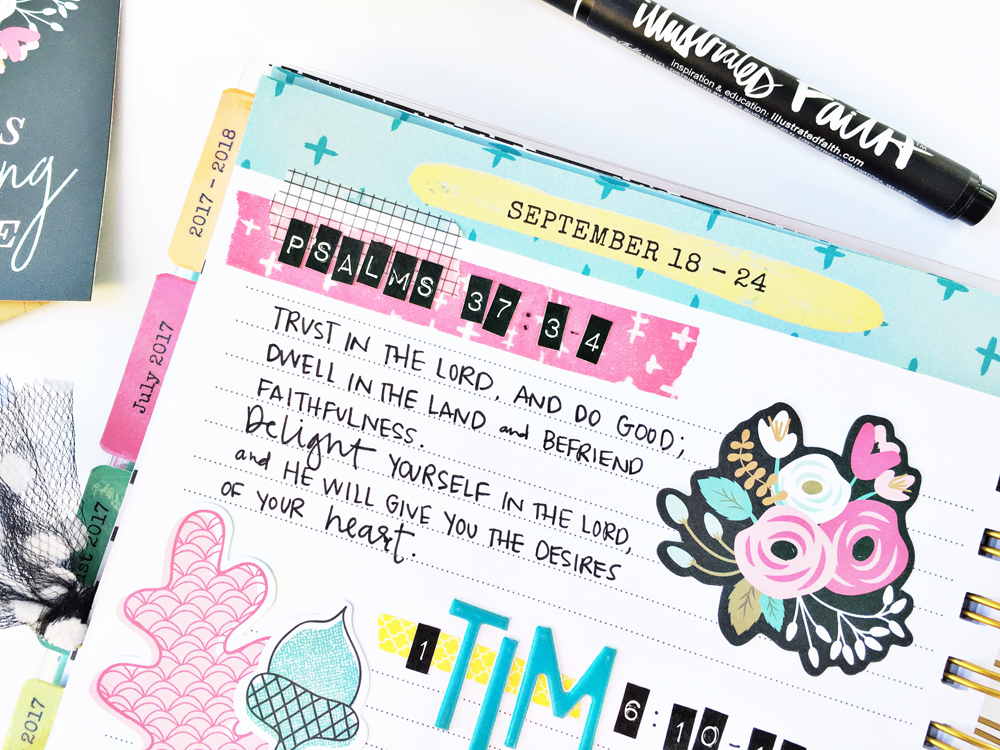 illustrated Faith
inspiration & education: illustratedfaith.com
2017 - 2018
SEPTEMBER 18 - 24
PSALMS 37:3-4
July 2017
TRUST IN THE LORD, AND DO GOOD;
DWELL IN THE LAND and BEFRIEND
FAITHFULNESS.
Delight YOURSELF IN THE LORD,
and HE WILL GIVE YOU THE DESIRES
OF YOUR heart.
2017
1 TIM 6:10-
2017